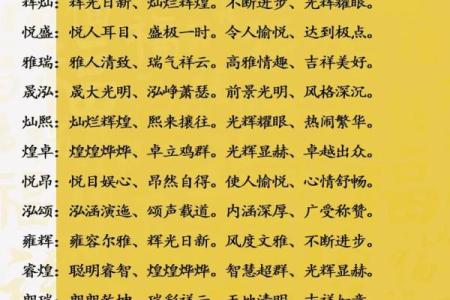 辉灿：辉光日新、灿烂辉煌。不断进步、光辉耀眼。
悦盛：悦人耳目、盛极一时。令人愉悦、达到极点。
雅瑞：雅人清致、瑞气祥云。高雅情趣、吉祥美好。
晟泓：晟大光明、泓峥萧瑟。前景光明、风格深沉。
灿熙：灿烂辉煌、熙来攘往。光辉耀眼、热闹繁华。
煌卓：煌煌烨烨、卓立鸡群。光辉显赫、卓越出众。
悦昂：悦目娱心、昂然自得。使人愉悦、心情舒畅。
泓颂：泓涵演迤、颂声载道。内涵深厚、广受称赞。
雍辉：雍容尔雅、辉光日新。风度文雅、不断进步。
睿煌：聪明睿智、煌煌烨烨。智慧超群、光辉显赫。
朗瑞：朗朗乾坤、瑞彩祥云。天地清明、吉祥如意。